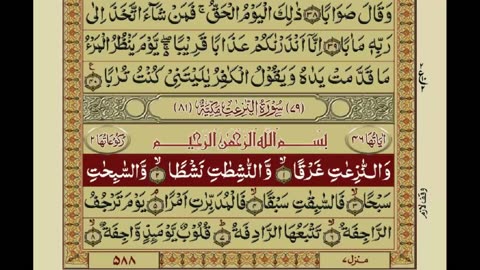 وَقَالَ صَوَابًا ﴿٣٨﴾ ذٰلِكَ الْيَوْمُ الْحَقُّ ۚ فَمَنْ شَآءَ اتَّخَذَ اِلٰى
رَبِّهٖ مَاٰبًا ﴿٣٩﴾ اِنَّاۤ اَنْذَرْنٰكُمْ عَذَابًا قَرِيْبًا ۖ يَّوْمَ يَنْظُرُ الْمَرْءُ
مَا قَدَّمَتْ يَدٰهُ وَيَقُوْلُ الْكٰفِرُ يٰلَيْتَنِيْ كُنْتُ تُرٰبًا ﴿٤٠﴾
(٧٩) سُوْرَةُ النّٰزِعٰتِ مَكِّيَّةٌ (٨١)
اٰيَاتُهَا ٤٦ بِسْمِ اللّٰهِ الرَّحْمٰنِ الرَّحِيْمِ رُكُوْعَاتُهَا ٢
وَالنّٰزِعٰتِ غَرْقًا ﴿١﴾ وَّالنّٰشِطٰتِ نَشْطًا ﴿٢﴾ وَّالسّٰبِحٰتِ
سَبْحًا ﴿٣﴾ فَالسّٰبِقٰتِ سَبْقًا ﴿٤﴾ فَالْمُدَبِّرٰتِ اَمْرًا ﴿٥﴾ يَوْمَ تَرْجُفُ
الرَّاجِفَةُ ﴿٦﴾ تَتْبَعُهَا الرَّادِفَةُ ﴿٧﴾ قُلُوْبٌ يَّوْمَئِذٍ وَّاجِفَةٌ ﴿٨﴾
وقف لازم
منزل ٧
٥٨٨